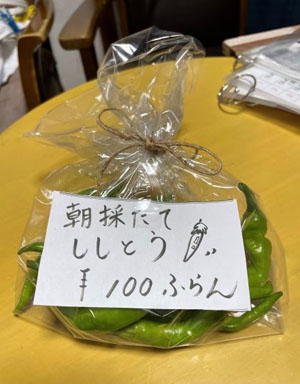 朝採たて
ししとう
¥100ふらん